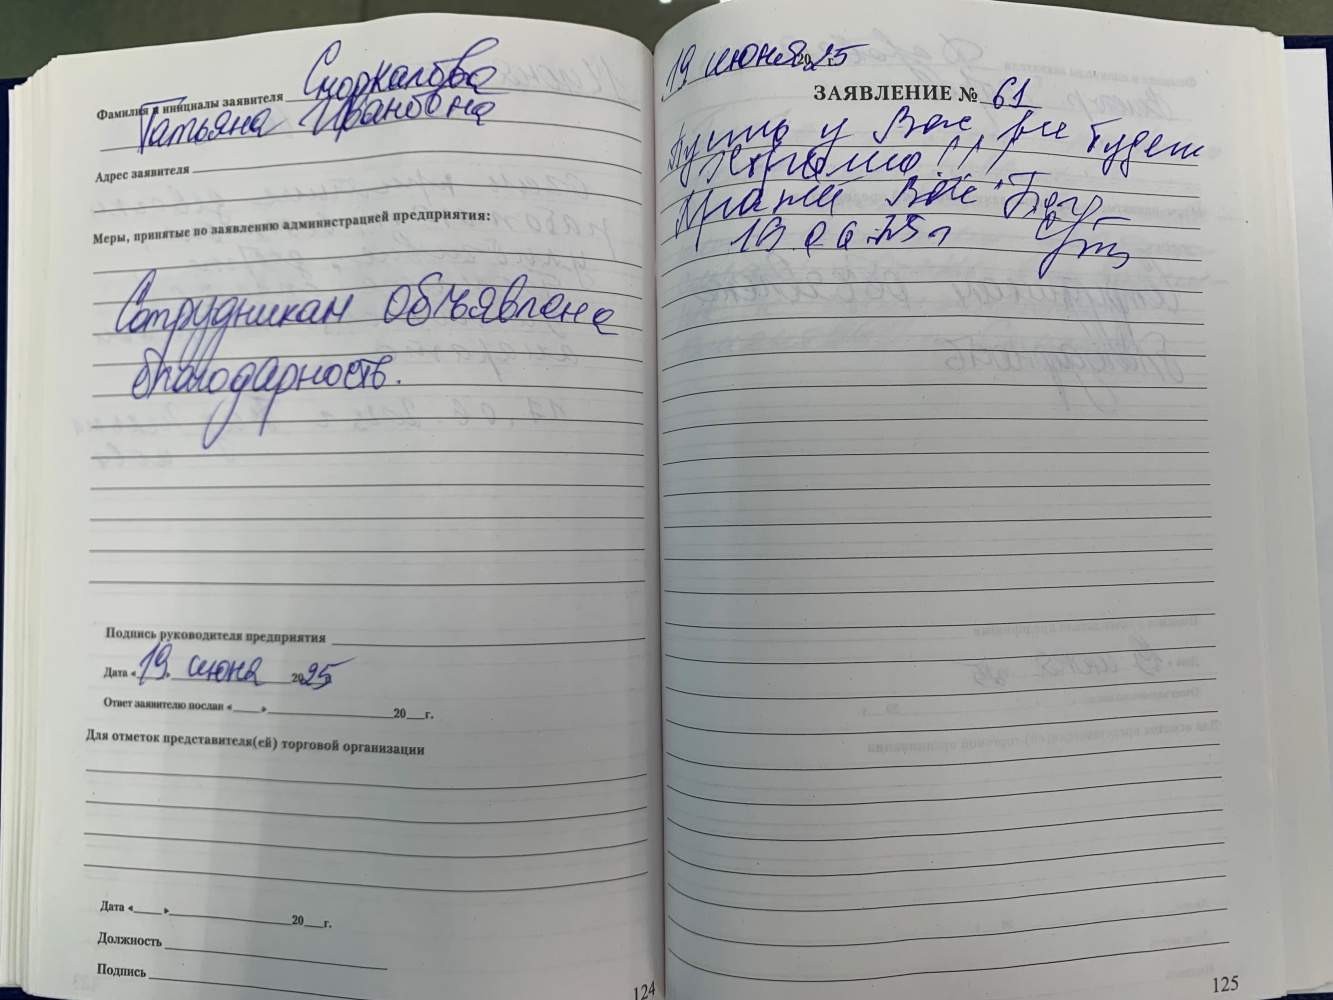 Фамилия и инициалы заявителя
Татьяна Ивановна
Адрес заявителя
Меры, принятые по заявлению администрацией предприятия:
Сотрудникам объявлена
благодарность.
Подпись руководителя предприятия
Дата « 19 » июня 2025
Ответ заявителю послан «____» ____ 20__г.
Для отметок представителя(ей) торговой организации
Дата «____» ____ 20__г.
Должность
Подпись
124
19 июня 2025 г.
ЗАЯВЛЕНИЕ № 61
Пусть у Вас все будет
хорошо!!!
Храни Вас Бог.
19.06.25г
125